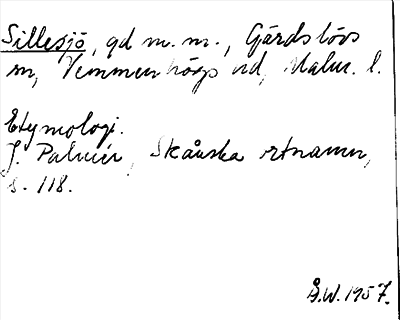 Sillesjö, gd m.m., Gärdslövs
sn, Vemmenhögs hd, Malm. l.
Etymologi.
J. Palmér, Skånska ortnamn,
s. 118.
Å.W. 1957.